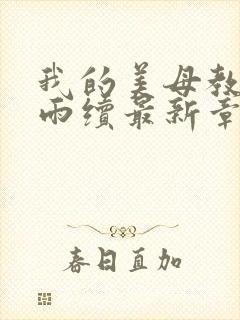 我的美母教
雨续最新章
春日直加